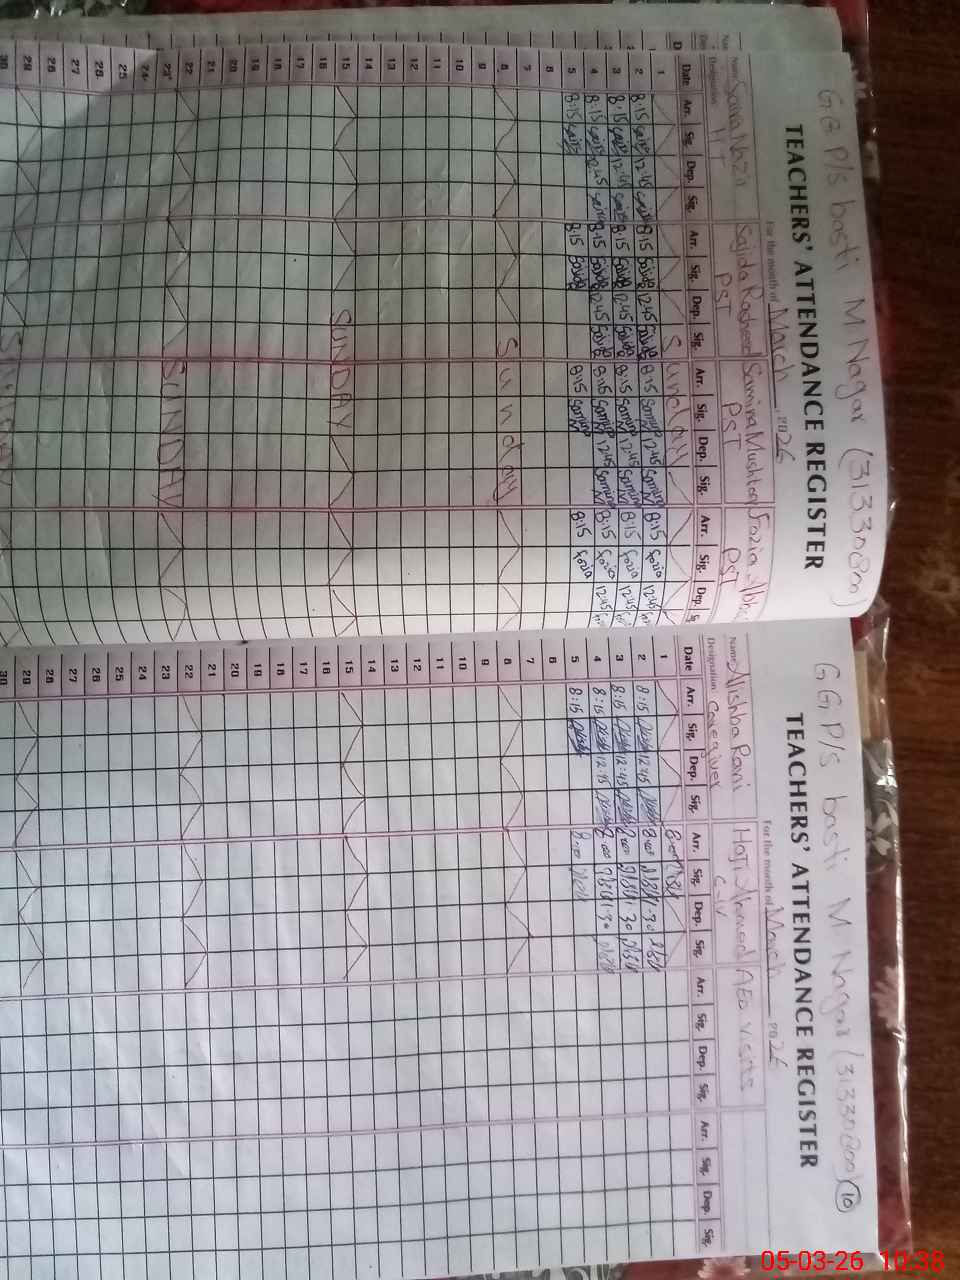 G G P/s basti M Nagar (31330800)
TEACHERS' ATTENDANCE REGISTER
For the month of March, 2026
Name Saira Nazir Sajida Rasheed Samina Mushtaq Fozia Abbas
Designation HT PST PST PST
Date Arr. Sig. Dep. Sig. Arr. Sig. Dep. Sig. Arr. Sig. Dep. Sig. Arr. Sig. Dep. S
1 Sunday
2 8:15 Saira 12:45 Saira 8:15 Sajida 12:45 Sajida 8:15 Samina 12:45 Samina 8:15 fozia 12:45
3 8:15 Saira 12:45 Saira 8:15 Sajida 12:45 Sajida 8:15 Samina 12:45 Samina 8:15 fozia 12:45
4 8:15 Saira 12:45 Saira 8:15 Sajida 12:45 Sajida 8:15 Samina 12:45 Samina 8:15 fozia 12:45
5 8:15 Saira 8:15 Sajida 8:15 Samina 8:15 fozia
6
7
8 Sunday
9
10
11
12
13
14
15 SUNDAY
16
17
18
19
20
21
22 SUNDAY
23
24
25
26
27
28
29
30
G G P/s basti M Nagar (31330800) 10
TEACHERS' ATTENDANCE REGISTER
For the month of March 2026
Name Alishba Rani Haji Ahmad AEO visits
Designation caregiver C-IV
Date Arr. Sig. Dep. Sig. Arr. Sig. Dep. Sig. Arr. Sig. Dep. Sig. Arr. Sig. Dep. Sig.
1
2 8:15 12:45 8:00 1:30
3 8:15 12:45 8:00 1:30
4 8:15 12:45 8:00 1:30
5 8:15 8:00
6
7
8
9
10
11
12
13
14
15
16
17
18
19
20
21
22
23
24
25
26
27
28
29
30
05-03-26 10:38